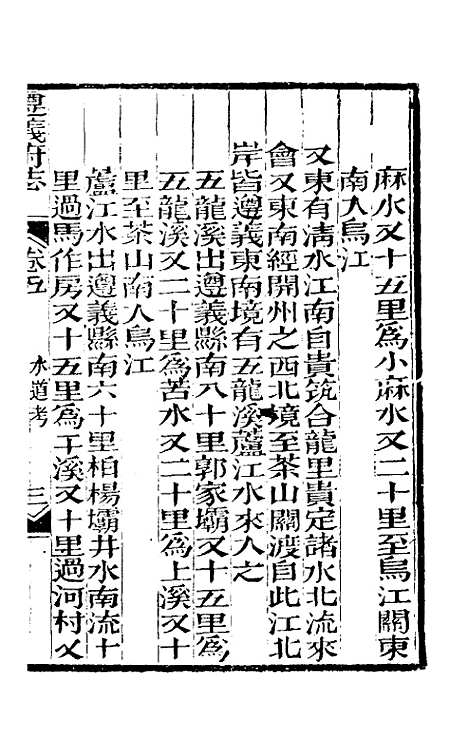 麻水又十五里爲小麻水又二十里至烏江關東
南入烏江
又東有淸水江南自貴筑合龍里貴定諸水北流來
會又東南經開州之西北境至茶山關渡自此江北
岸皆遵義東南境有五龍溪蘆江水來入之
五龍溪出遵義縣南八十里郭家壩又十五里爲
五龍溪又二十里爲苦水又二十里爲上溪又十
里至茶山南入烏江
蘆江水出遵義縣南六十里柏楊壩井水南流十
里過馬作房又十五里爲干溪又十里過河村又
遵義府志
卷五
水道考
三